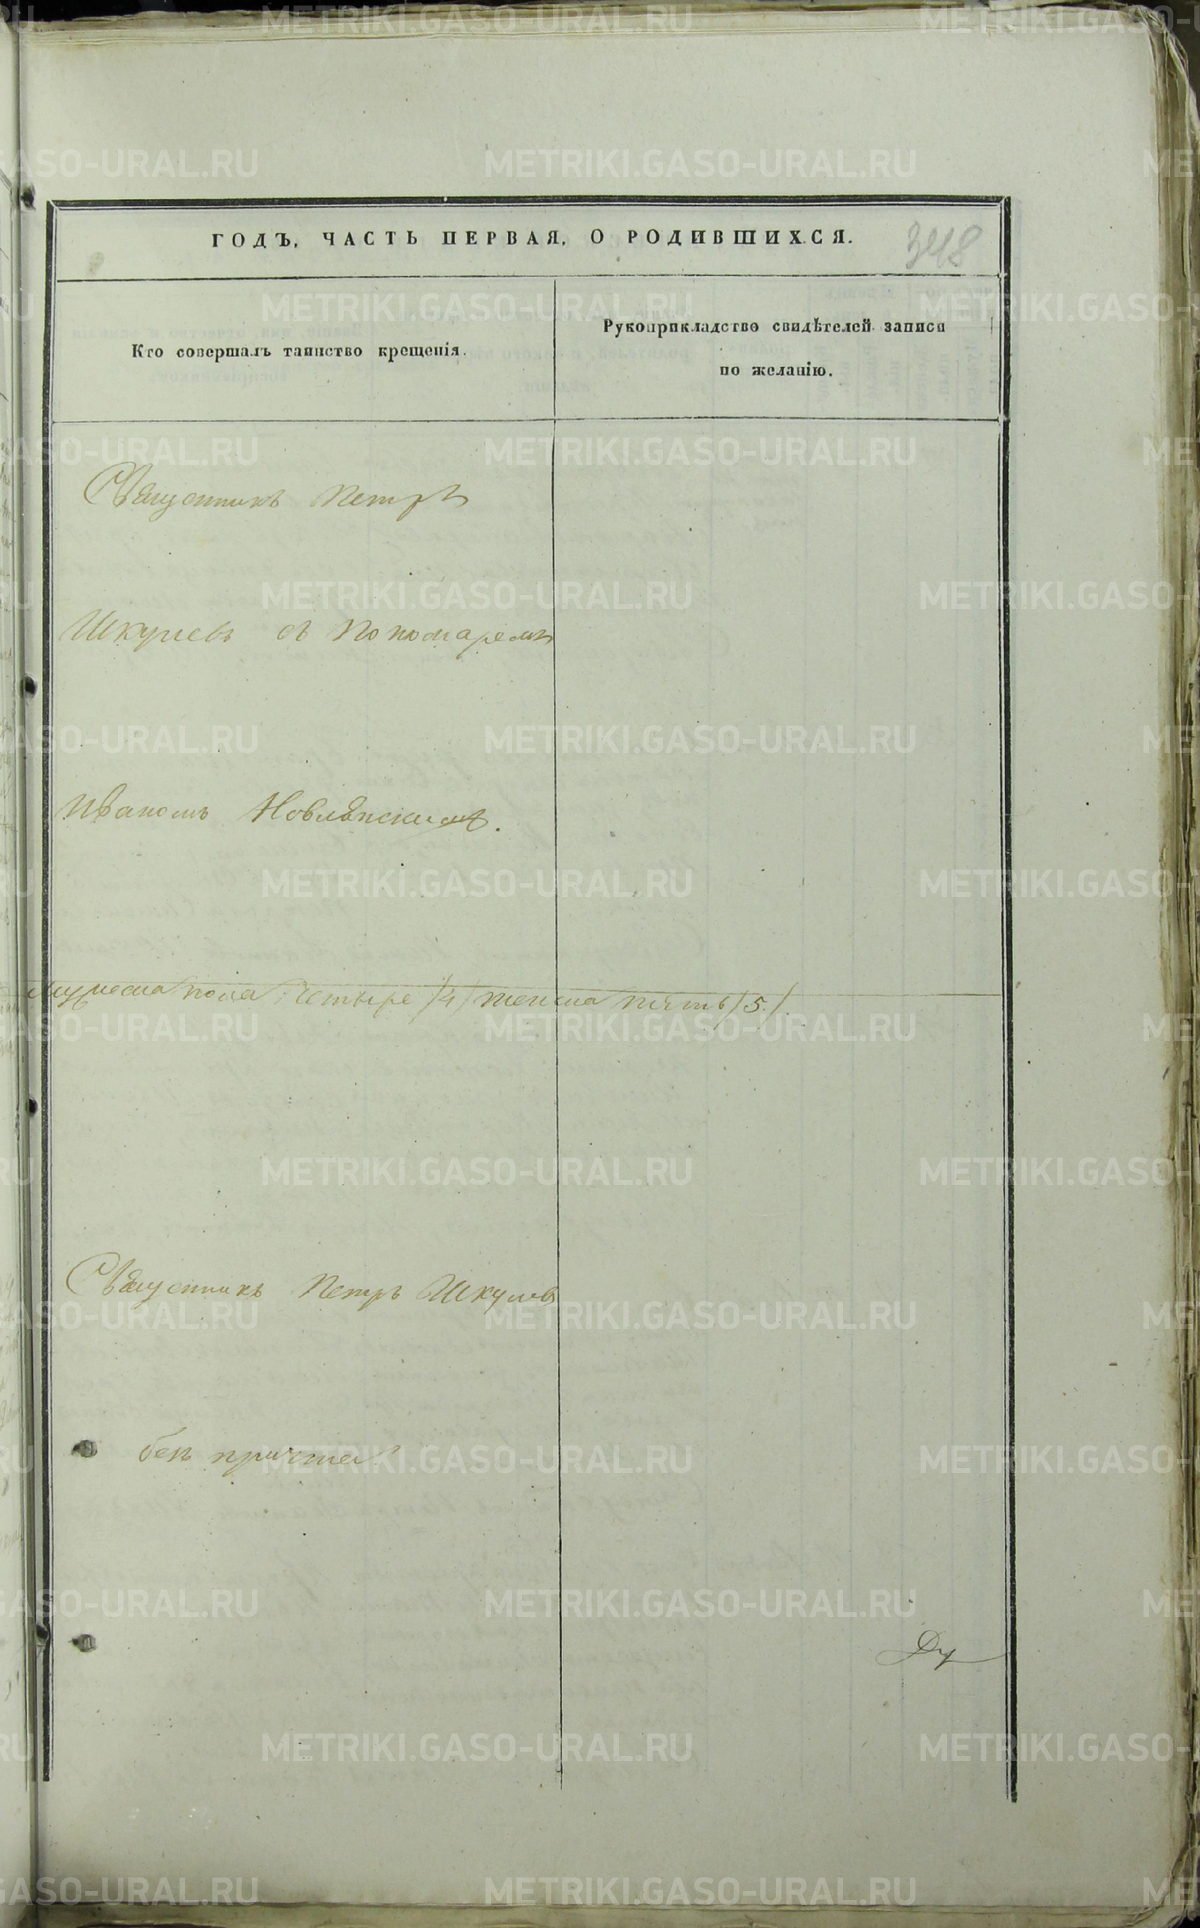 ГОДЪ, ЧАСТЬ ПЕРВАЯ, О РОДИВШИХСЯ.
348
Кто совершалъ таинство крещенія.
Рукоприкладство свидѣтелей записи
по желанію.
Священникъ Петръ
Шкулевъ съ Пономаремъ
Иваномъ
мужеска пола четыре /4/ женска пять /5/.
Священникъ Петръ Шкулевъ
безъ причта
METRIKI.GASO-URAL.RU